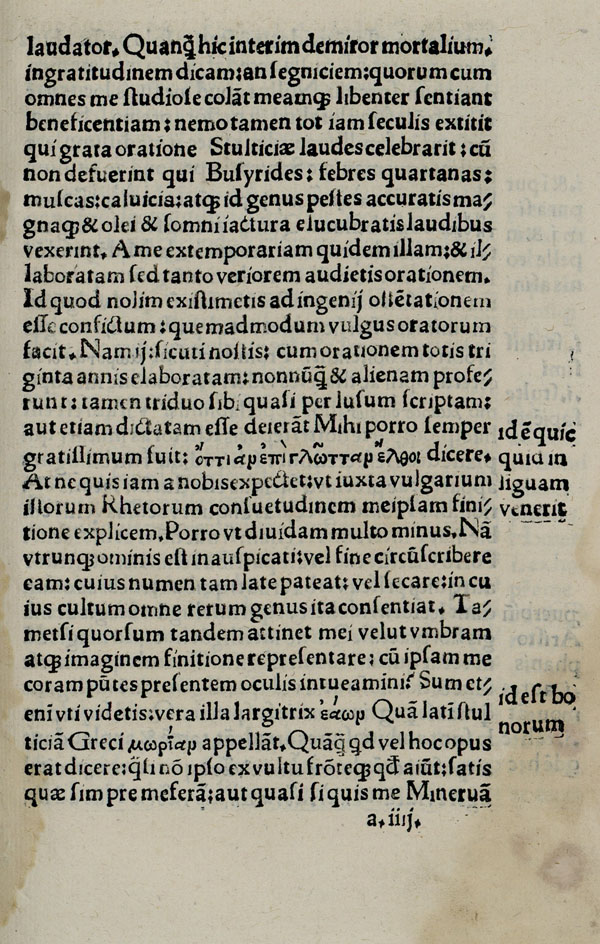 laudator. Quanq̃ hic interim demiror mortalium.
ingratitudinem dicam: an segniciem: quorum cum
omnes me studiose colãt meamqꝫ libenter sentiant
beneficentiam: nemo tamen tot iam seculis extitit
qui grata oratione Stulticiæ laudes celebrarit: cũ
non defuerint qui Busyrides: febres quartanas:
muscas: caluicia: atqꝫ id genus pestes accuratis ma/
gnaqꝫ & olei & somni iactura elucubratis laudibus
vexerint. A me extemporariam quidem illam: & il/
laboratam sed tanto veriorem audietis orationem.
Id quod nolim existimetis ad ingenij ostẽtationem
esse confictum: quemadmodum vulgus oratorum
facit. Nam ij: sicuti nostis: cum orationem totis tri
ginta annis elaboratam: nonnũq̃ & alienam profe/
runt: tamen triduo sibi quasi per lusum scriptam:
aut etiam dictatam esse deierãt Mihi porro semper
gratissimum fuit: ὅττιαρ ἐπὶ γλῶτταρ ἔλθοι dicere.
At ne quis iam a nobis expectet: vt iuxta vulgarium
istorum Rhetorum consuetudinem meipsam fini/
tione explicem. Porro vt diuidam multo minus. Nã
vtrunqꝫ ominis est inauspicati: vel fine circũscribere
eam: cuius numen tam late pateat: vel secare: in cu
ius cultum omne rerum genus ita consentiat. Ta/
metsi quorsum tandem attinet mei velut vmbram
atqꝫ imaginem finitione representare: cũ ipsam me
coram pũtes presentem oculis intueamini? Sum et/
enĩ vti videtis: vera illa largitrix ἐάωρ Quã latĩ stul
ticiã Greci μωρίαρ appellãt. Quãq̃ qd vel hoc opus
erat dicere: q̃si nõ ipso ex vultu frõteqꝫ qđ aiũt: satis
quæ sim pre me ferã: aut quasi si quis me Mineruã
a.iiij.
id ẽ quic
quid in
liguam
venerit
id est bo
norum